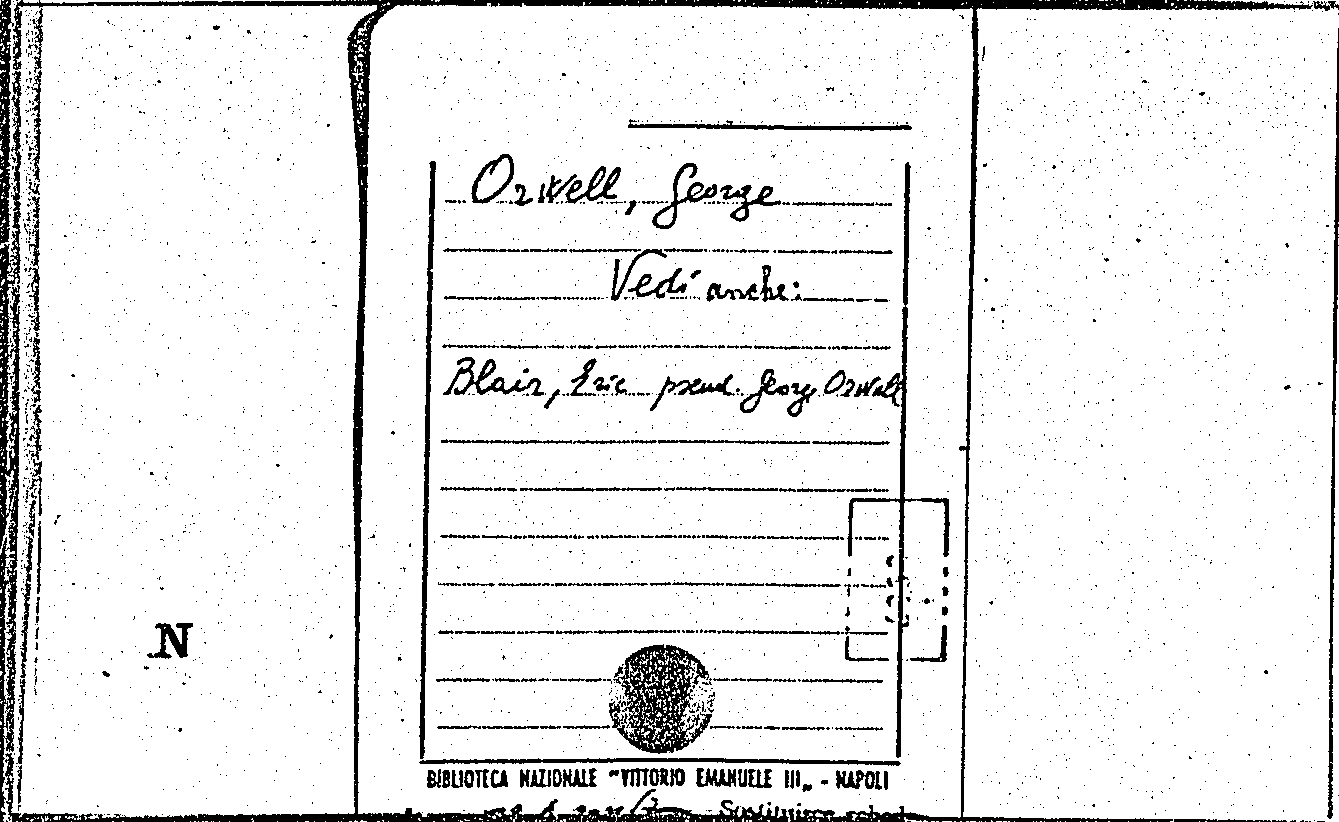 Orwell, George
Vedi anche:
Blair, Eric pseud. George Orwell
N
BIBLIOTECA NAZIONALE "VITTORIO EMANUELE III„ - NAPOLI